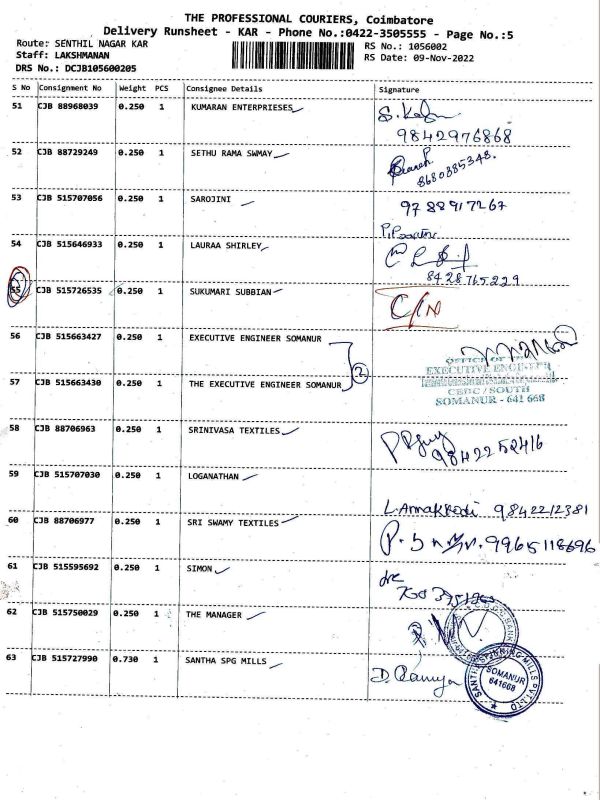 THE PROFESSIONAL COURIERS, Coimbatore
Delivery Runsheet - KAR - Phone No.:0422-3505555 - Page No.:5
Route: SENTHIL NAGAR KAR
Staff: LAKSHMANAN
DRS No.: DCJB105600205
RS No.: 1056002
RS Date: 09-Nov-2022
S No Consignment No Weight PCS Consignee Details Signature
51 CJB 88968039 0.250 1 KUMARAN ENTERPRIESES
9842976868
52 CJB 88729249 0.250 1 SETHU RAMA SWMAY
8680885348.
53 CJB 515707056 0.250 1 SAROJINI 9788917267
54 CJB 515646933 0.250 1 LAURAA SHIRLEY
8428765229
55 CJB 515726535 0.250 1 SUKUMARI SUBBIAN
56 CJB 515663427 0.250 1 EXECUTIVE ENGINEER SOMANUR
2
OFFICE OF THE
EXECUTIVE ENGINEER
57 CJB 515663430 0.250 1 THE EXECUTIVE ENGINEER SOMANUR
CEDC / SOUTH
SOMANUR - 641 668
58 CJB 88706963 0.250 1 SRINIVASA TEXTILES
9842252416
59 CJB 515707030 0.250 1 LOGANATHAN
9842212381
60 CJB 88706977 0.250 1 SRI SWAMY TEXTILES
9965118696
61 CJB 515595692 0.250 1 SIMON
62 CJB 515750029 0.250 1 THE MANAGER
63 CJB 515727990 0.730 1 SANTHA SPG MILLS
D. Ramya
SANTHA SPINNING MILLS PVT LTD
SOMANUR
641668